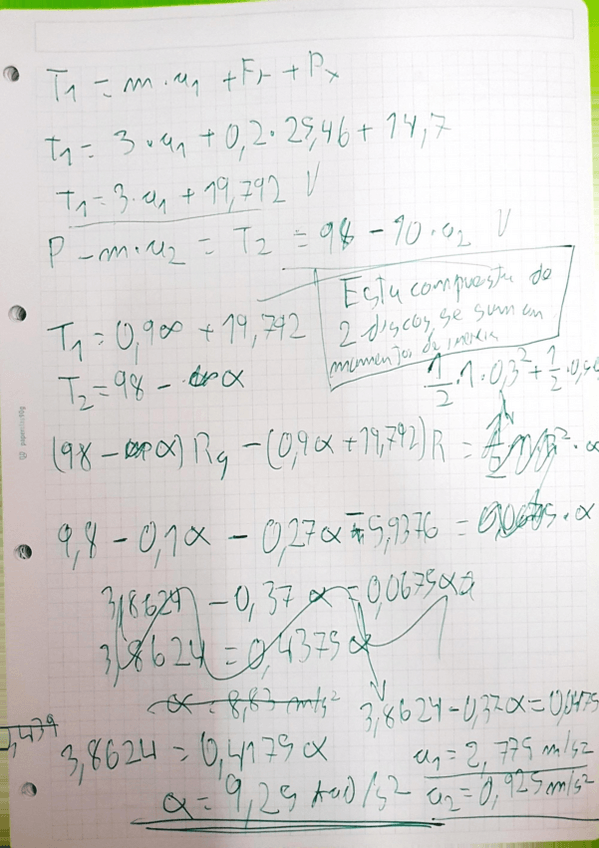 T₁ = m·a₁ + Fr + Pₓ
t₁ = 3·a₁ + 0,2·25,46 + 14,7
T₁ = 3·a₁ + 19,792 V
P - m·a₂ = T₂ = 98 - 10·a₂ V
Esta compuesta de
2 discos, se suman
momentos de inercia
T₁ = 0,9α + 19,792
T₂ = 98 - α
1/2·1·0,3² + 1/2·0,5
(98 - α) R - (0,9α + 19,792)R = · α
9,8 - 0,1α - 0,27α - 5,9376 = · α
3,8624 - 0,37α = 0,0675α
3,8624 = 0,4375α
α = 8,83 m/s²
3,8624 - 0,37α = 0,0475
3,439
3,8624 = 0,4175α
a₁ = 2,775 m/s²
α = 9,25 rad/s²
a₂ = 0,925 m/s²